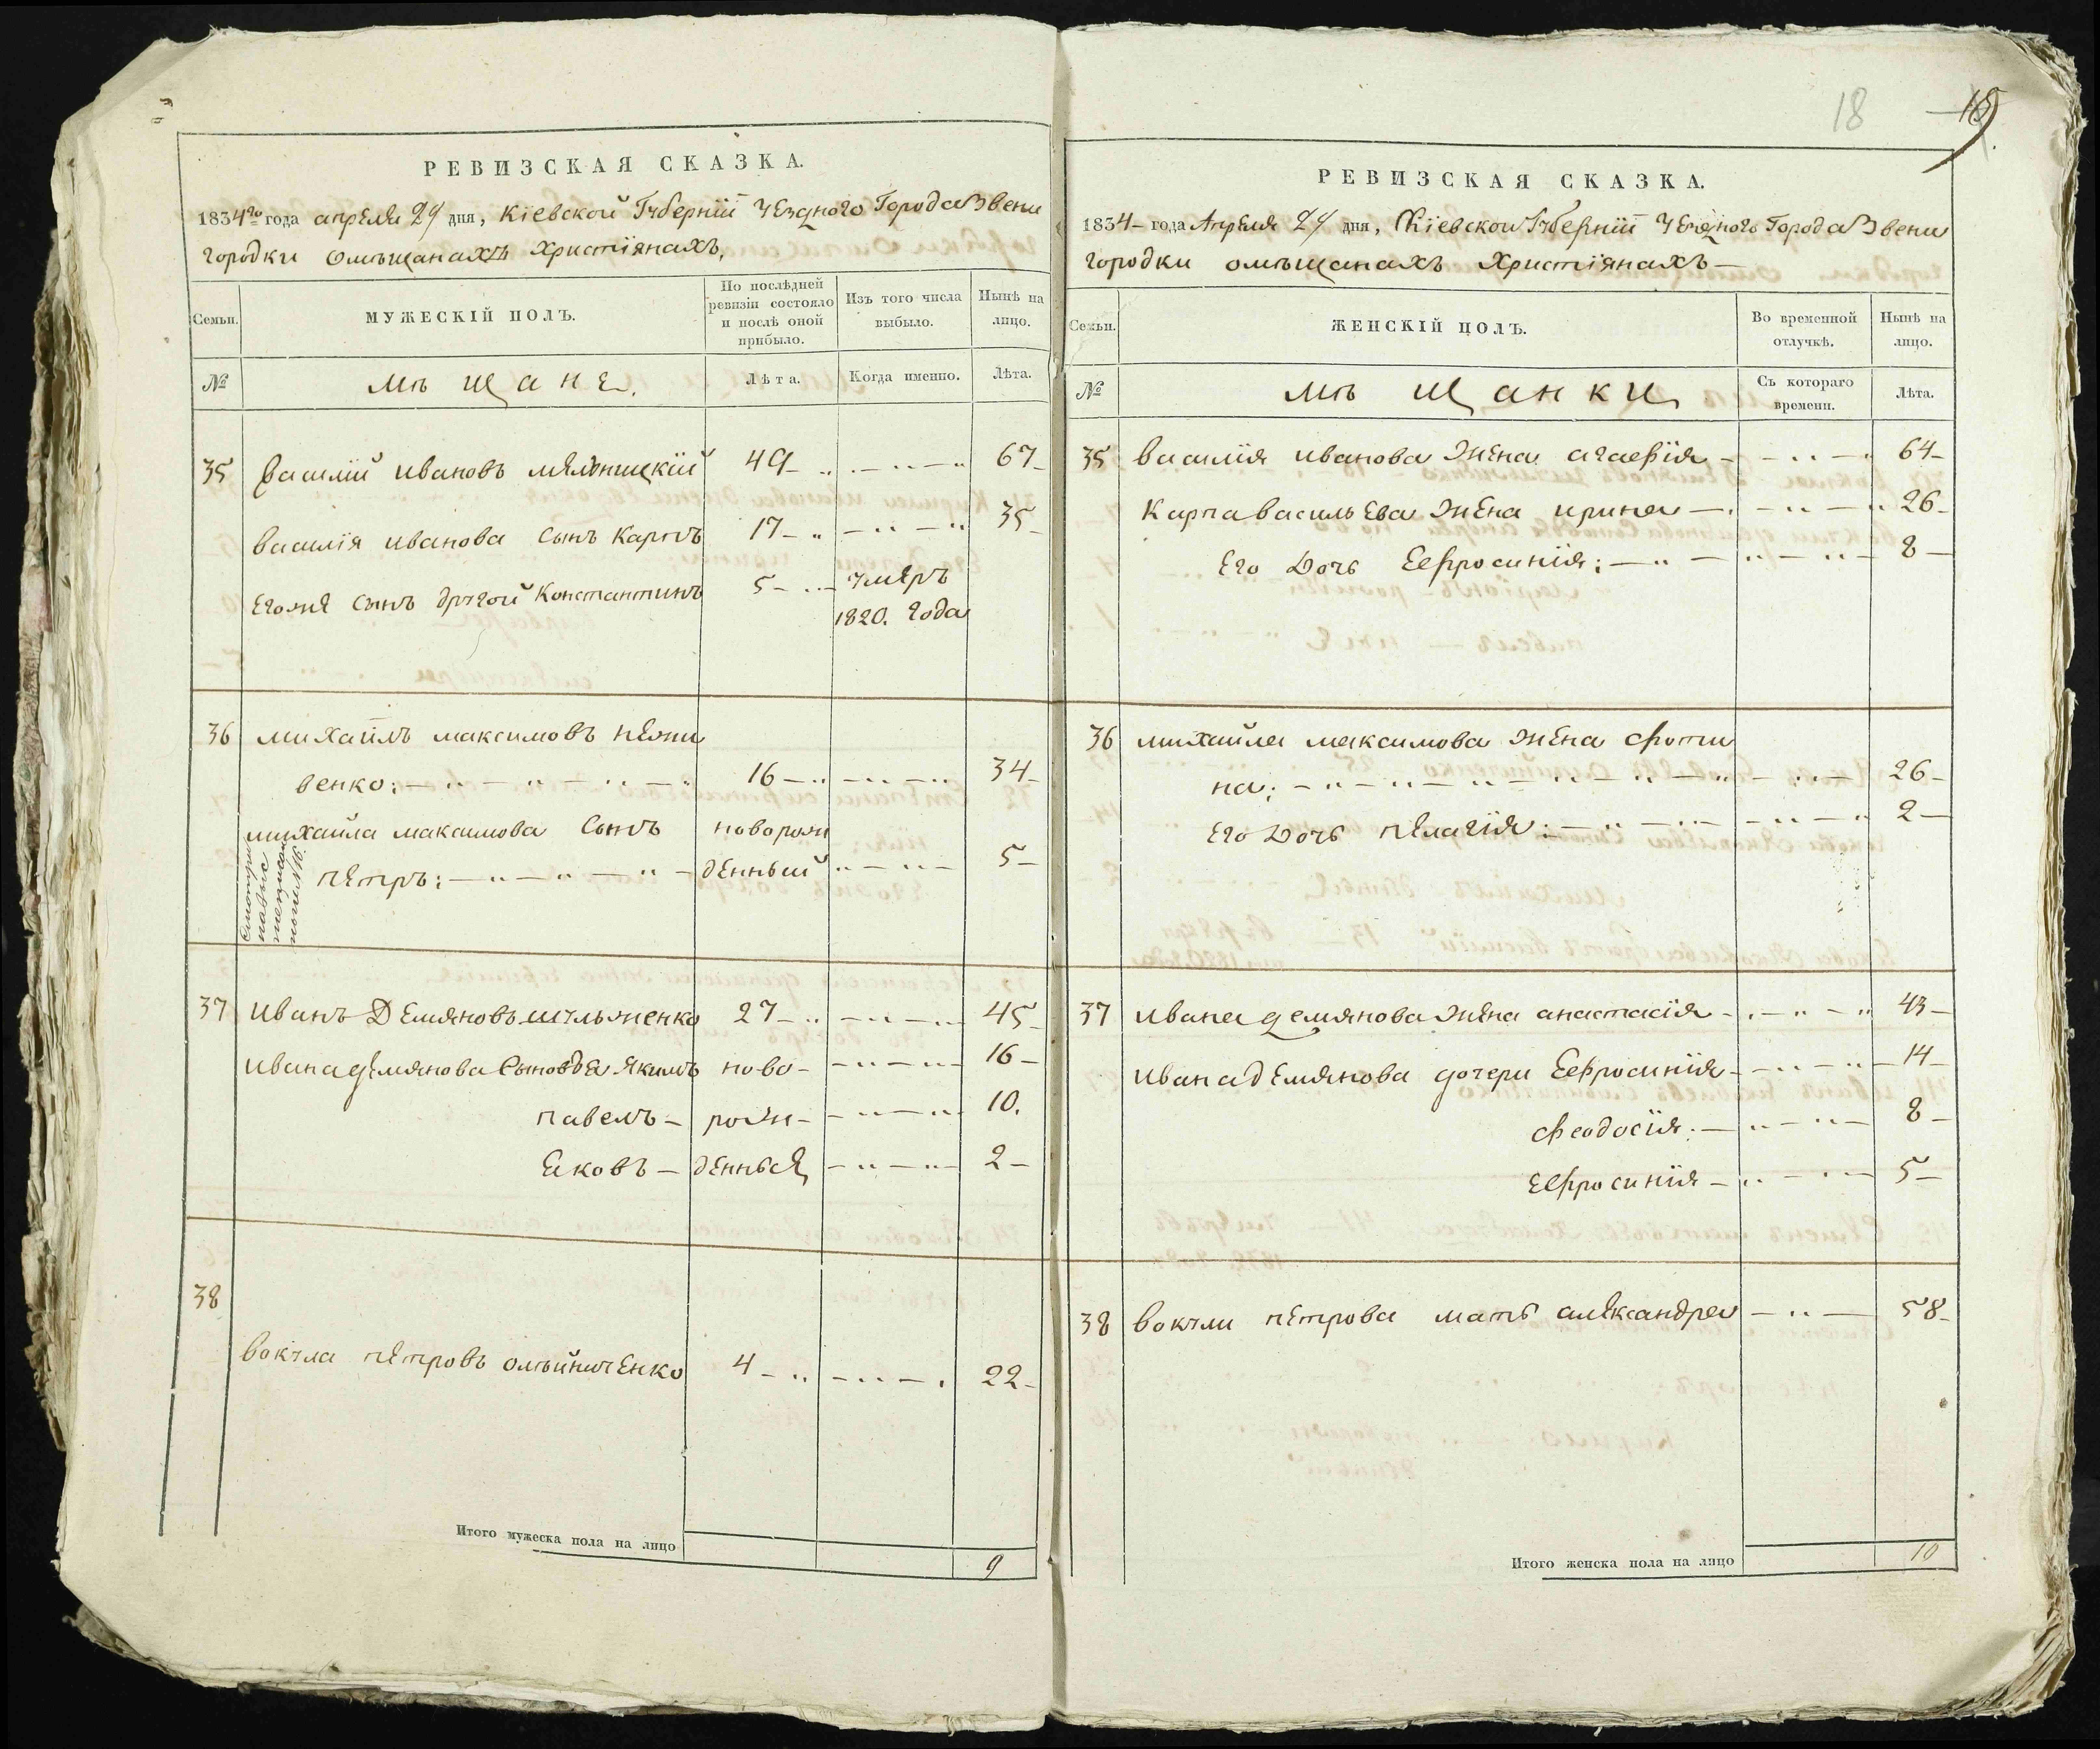 РЕВИЗСКАЯ СКАЗКА.
1834го года апреля 29 дня, Кіевской Губерніи Уезднаго Города Звени
городки омѣщанахъ христіянахъ,
Семьи.
МУЖЕСКІЙ ПОЛЪ.
По послѣдней ревизіи состояло и послѣ оной прибыло.
Изъ того числа выбыло.
Нынѣ на лицо.
№
мѣщане.
Лѣта.
Когда именно.
Лѣта.
35 василій ивановъ мельницкій 49 67
василія иванова сынъ карпъ 17 35
егоже сынъ другой константинъ 5 умеръ
1820. года
36 михайлъ максимовъ нежи
венко: 16 34
михайла максимова сынъ новорож
петръ: денный 5
37 иванъ Демяновъ шульженко 27 45
ивана демянова сыновья якимъ ново- 16
павелъ рож- 10.
Яковъ денныя 2
38
вокула петровъ олѣйниченко 4 22
Итого мужеска пола на лицо 9
18 19
РЕВИЗСКАЯ СКАЗКА.
1834 года Апреля 29 дня, Кіевской Губерніи Уезднаго Города Звени
городки омѣщанахъ христіянахъ
Семьи.
ЖЕНСКІЙ ПОЛЪ.
Во временной отлучкѣ.
Нынѣ на лицо.
№
мѣщанки
Съ котораго времени.
Лѣта.
35 василія иванова жена агафія 64
карпа васильева жена ирина 26
его дочь Eвфросинія: 8
36 михайла максимова жена фоти
на: 26
его дочь пелагія: 2
37 ивана демянова жена анастасія 43
ивана демянова дочери Eвфросинія 14
феодосія: 8
Eвфросинія 5
38 вокули петрова мать александра 58
Итого женска пола на лицо 10